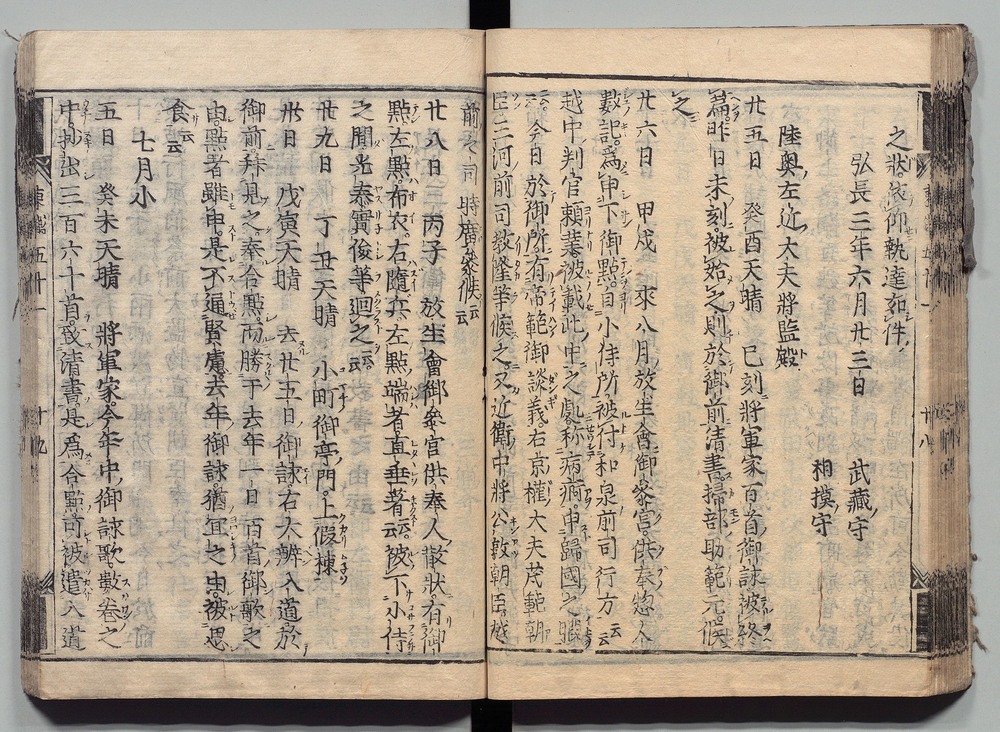 之狀依仰執達如件
弘長三年六月廿三日 武藏守
相摸守
陸奥左近大夫將監殿
廿五日 癸酉天晴 已刻將軍家百首御詠被終
篇昨日未刻被始之則於御前清書掃部助範元候
之
廿六日 甲戌 來八月放生會御參宮供奉惣人
數記爲申下御點自小侍所被付和泉前司行方云云
越中判官頼業被載此中之處称病痾申歸國之暇
云云今日於御所有帝範御談義右京權大夫茂範朝
臣三河前司教隆等候之又近衛中將公敦朝臣越
前々司時廣參候云云
廿八日 丙子 放生會御參宮供奉人散狀有御
點左點布衣右隨兵左點端者直垂著云云被下小侍
之間光泰實俊等廻之云云
廿九日 丁丑天晴 小町御亭門上假棟
卅日 戊寅天晴 去廿五日御詠右大辨入道於
御前拜見之奉合點而勝于去年一日百首御歌之
由點者雖申是不逼賢慮去年御詠猶宜之由被思
食云云
七月小
五日 癸未天晴 將軍家今年中御詠歌數卷之
中抄出三百六十首致清書是爲合點可被遣入道
東鑑五十一 十八
東鑑五十一 十九